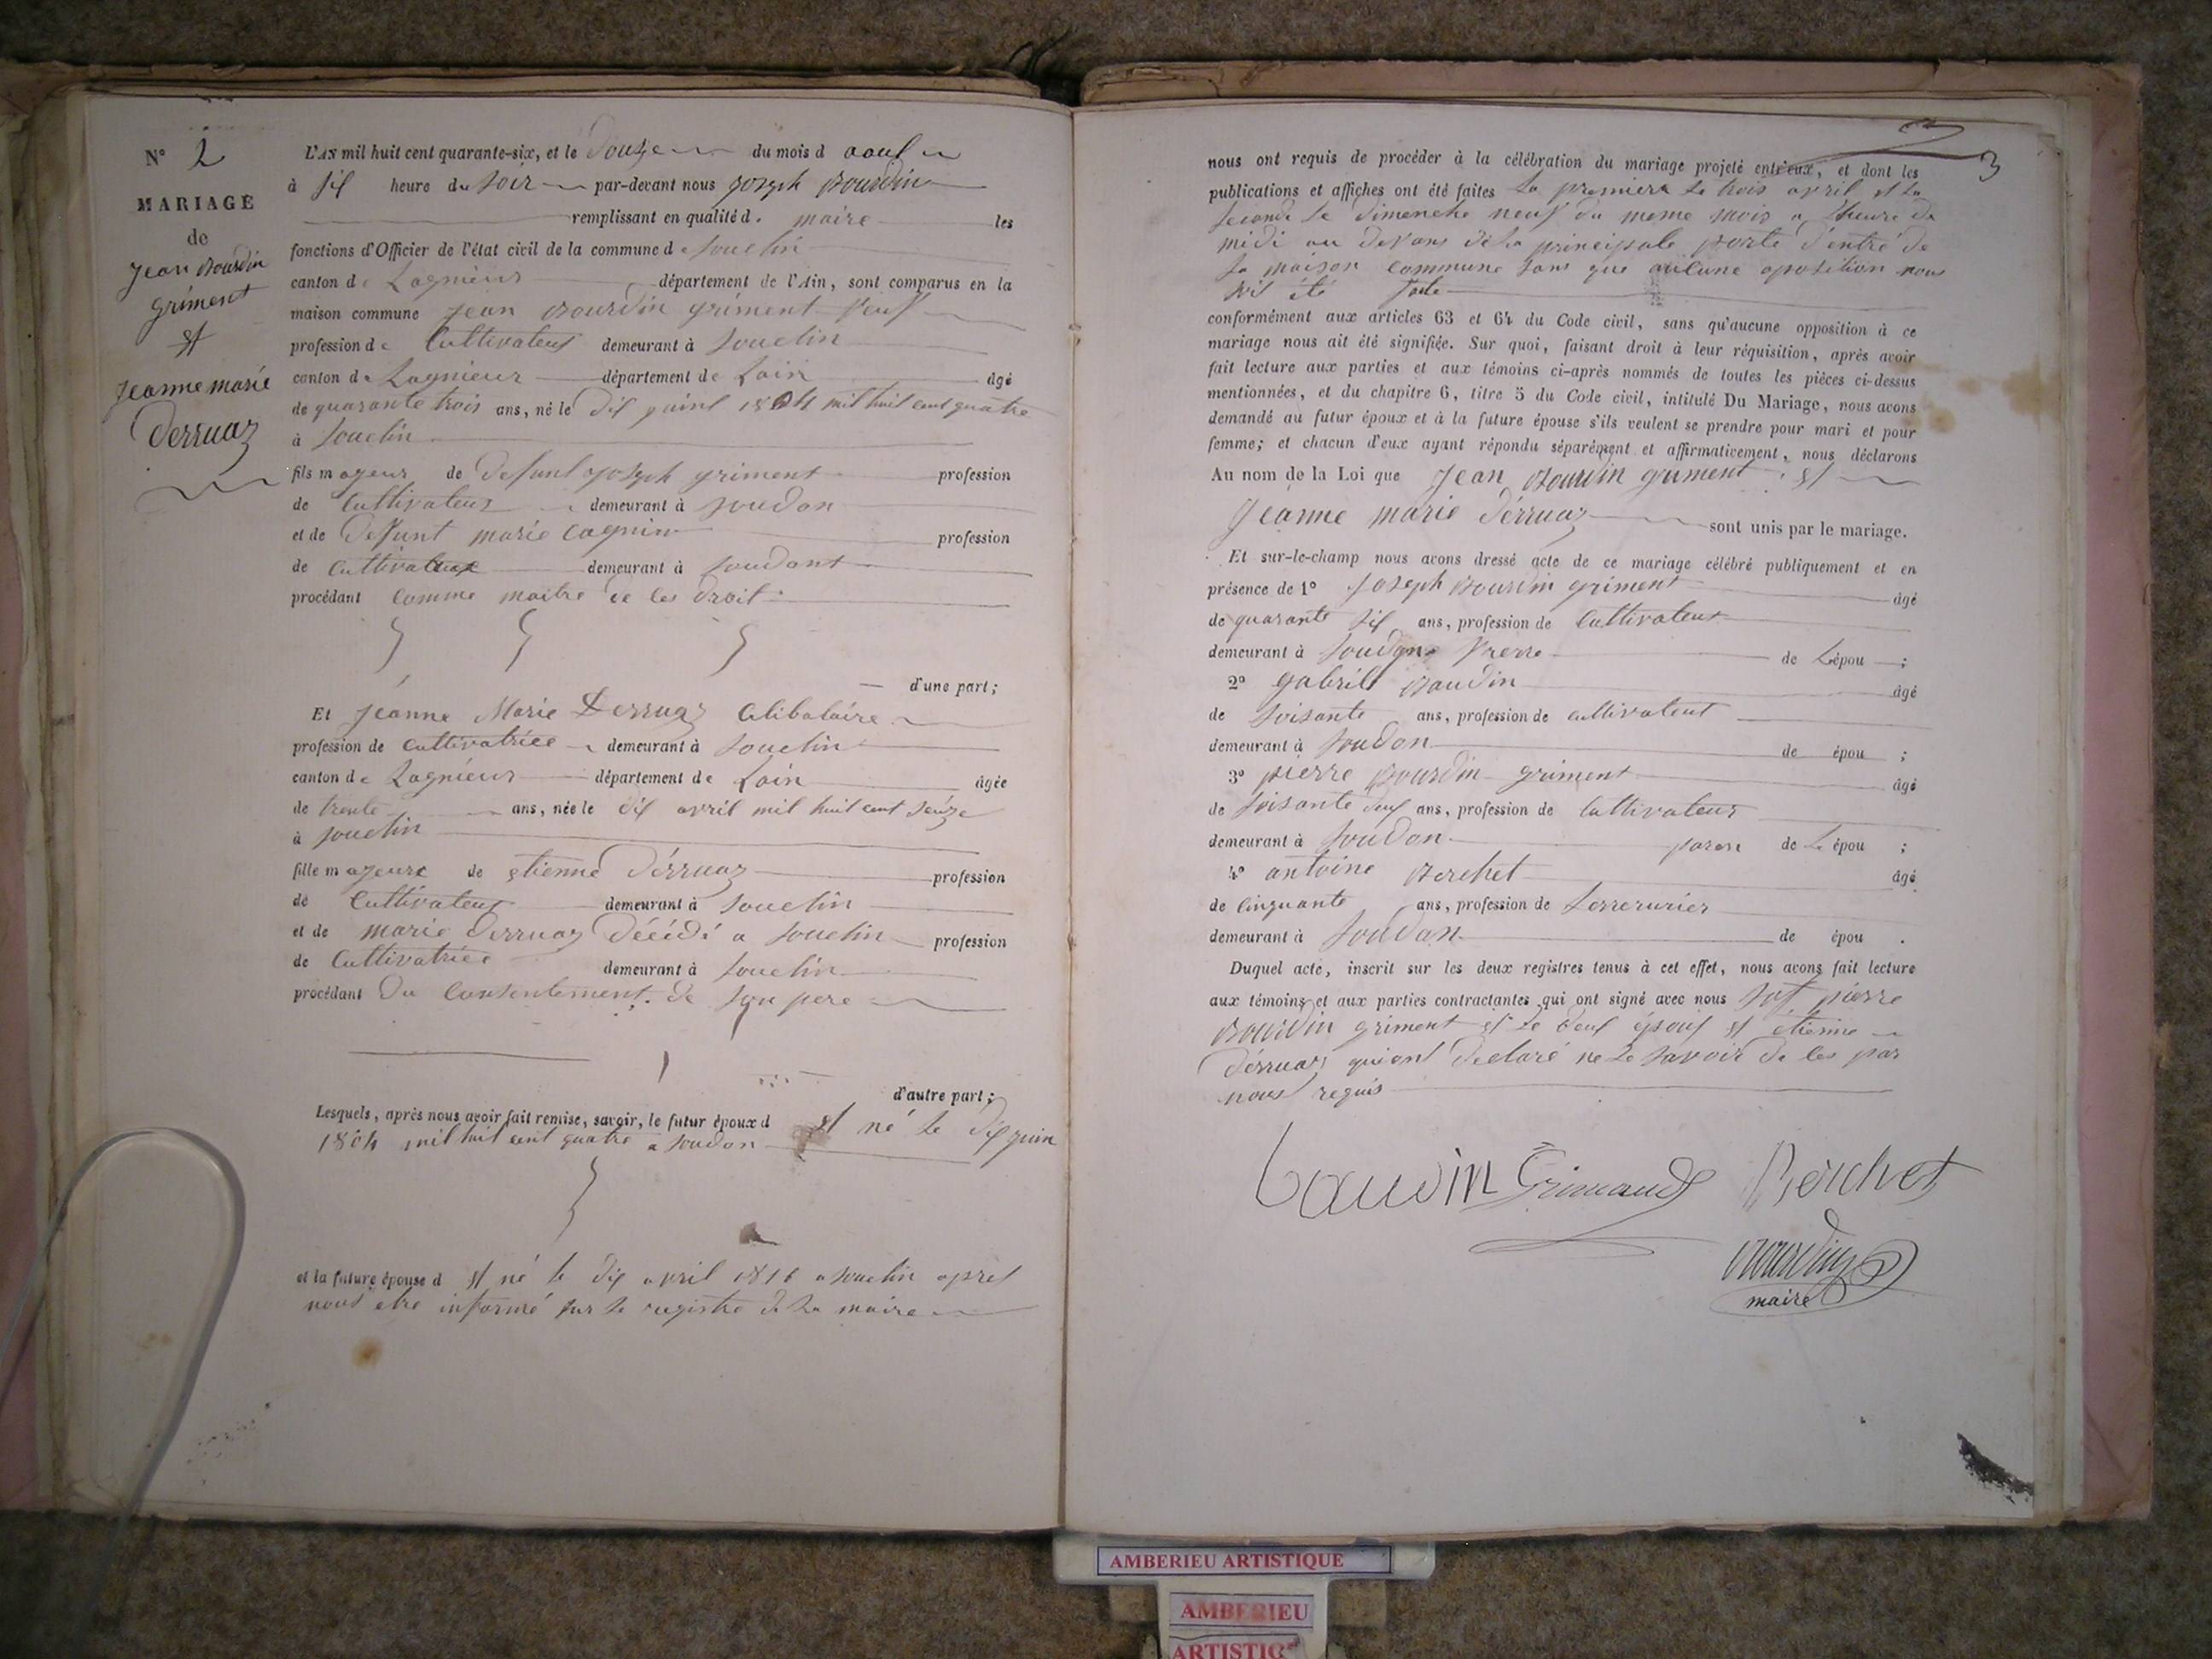 N° 2
MARIAGE
de
jean Bourdin
griment
et
jeanne marie
Derruaz
L'AN mil huit cent quarante-six, et le Douze du mois d aout
à six heure du soir par-devant nous joseph Bourdin
remplissant en qualité de maire les
fonctions d'Officier de l'état civil de la commune de souclin
canton de Lagnieur département de l'Ain, sont comparus en la
maison commune jean Bourdin griment veuf
profession de Cultivateur demeurant à souclin
canton de Lagnieur département de Lain âgé
de quarante trois ans, né le dix juint 1804 mil huit cent quatre
à souclin
fils majeur de Defunt joseph griment profession
de Cultivateur demeurant à soudon
et de Defunt marie cagnin profession
de Cultivateur demeurant à soudont
procédant comme maitre de ces droit
d'une part;
Et jéanne Marie Derruaz Célibataire
profession de cultivatrice demeurant à souclin
canton de Lagnieur département de Lain âgée
de trente ans, née le dix avril mil huit cent seize
à souclin
fille majeure de étienne Dérruaz profession
de Cultivateur demeurant à souclin
et de marie Derruaz Décédé a souclin profession
de Cultivatrice demeurant à souclin
procédant du consentement de son pere
d'autre part;
Lesquels, après nous avoir fait remise, savoir, le futur époux d et né le dix juin
1804 mil huit cent quatre a soudon
et la future épouse d et né le dix avril 1816 a souclin apret
nous etre informé sur le registre de la maire
3
nous ont requis de procéder à la célébration du mariage projeté entr'eux, et dont les
publications et affiches ont été faites la premiere le trois avril et la
seconde le dimenche neuf du meme mois a l'heure de
midi au devans de la principale porte d'entré de
la maison commune sans que aucune oposition nous
soit été faite
conformément aux articles 63 et 64 du Code civil, sans qu'aucune opposition à ce
mariage nous ait été signifiée. Sur quoi, faisant droit à leur réquisition, après avoir
fait lecture aux parties et aux témoins ci-après nommés de toutes les pièces ci-dessus
mentionnées, et du chapitre 6, titre 5 du Code civil, intitulé Du Mariage, nous avons
demandé au futur époux et à la future épouse s'ils veulent se prendre pour mari et pour
femme; et chacun d'eux ayant répondu séparément et affirmativement, nous déclarons
Au nom de la Loi que jean Bourdin griment et
jeanne marie dérruaz sont unis par le mariage.
Et sur-le-champ nous avons dressé acte de ce mariage célébré publiquement et en
présence de 1° joseph Bourdin griment âgé
de quarante six ans, profession de Cultivateur
demeurant à soudon frerre de Lépou ;
2° gabrilt Baudin âgé
de soisante ans, profession de cultivateur
demeurant à soudon de épou ;
3° pierre Bourdin griment âgé
de soisante deux ans, profession de Cultivateur
demeurant à soudon paran de L épou ;
4° antoine Berchet âgé
de cinquante ans, profession de serrerurier
demeurant à soudan de épou .
Duquel acte, inscrit sur les deux registres tenus à cet effet, nous avons fait lecture
aux témoins et aux parties contractantes qui ont signé avec nous sof pierre
Bourdin griment et le deux épouf et étienne
dérruaz qui ont declaré ne le savoir de ces par
nous requis
baudin Grimand Berchet
Bourdin
maire
AMBERIEU ARTISTIQUE
AMBERIEU
ARTISTIQ